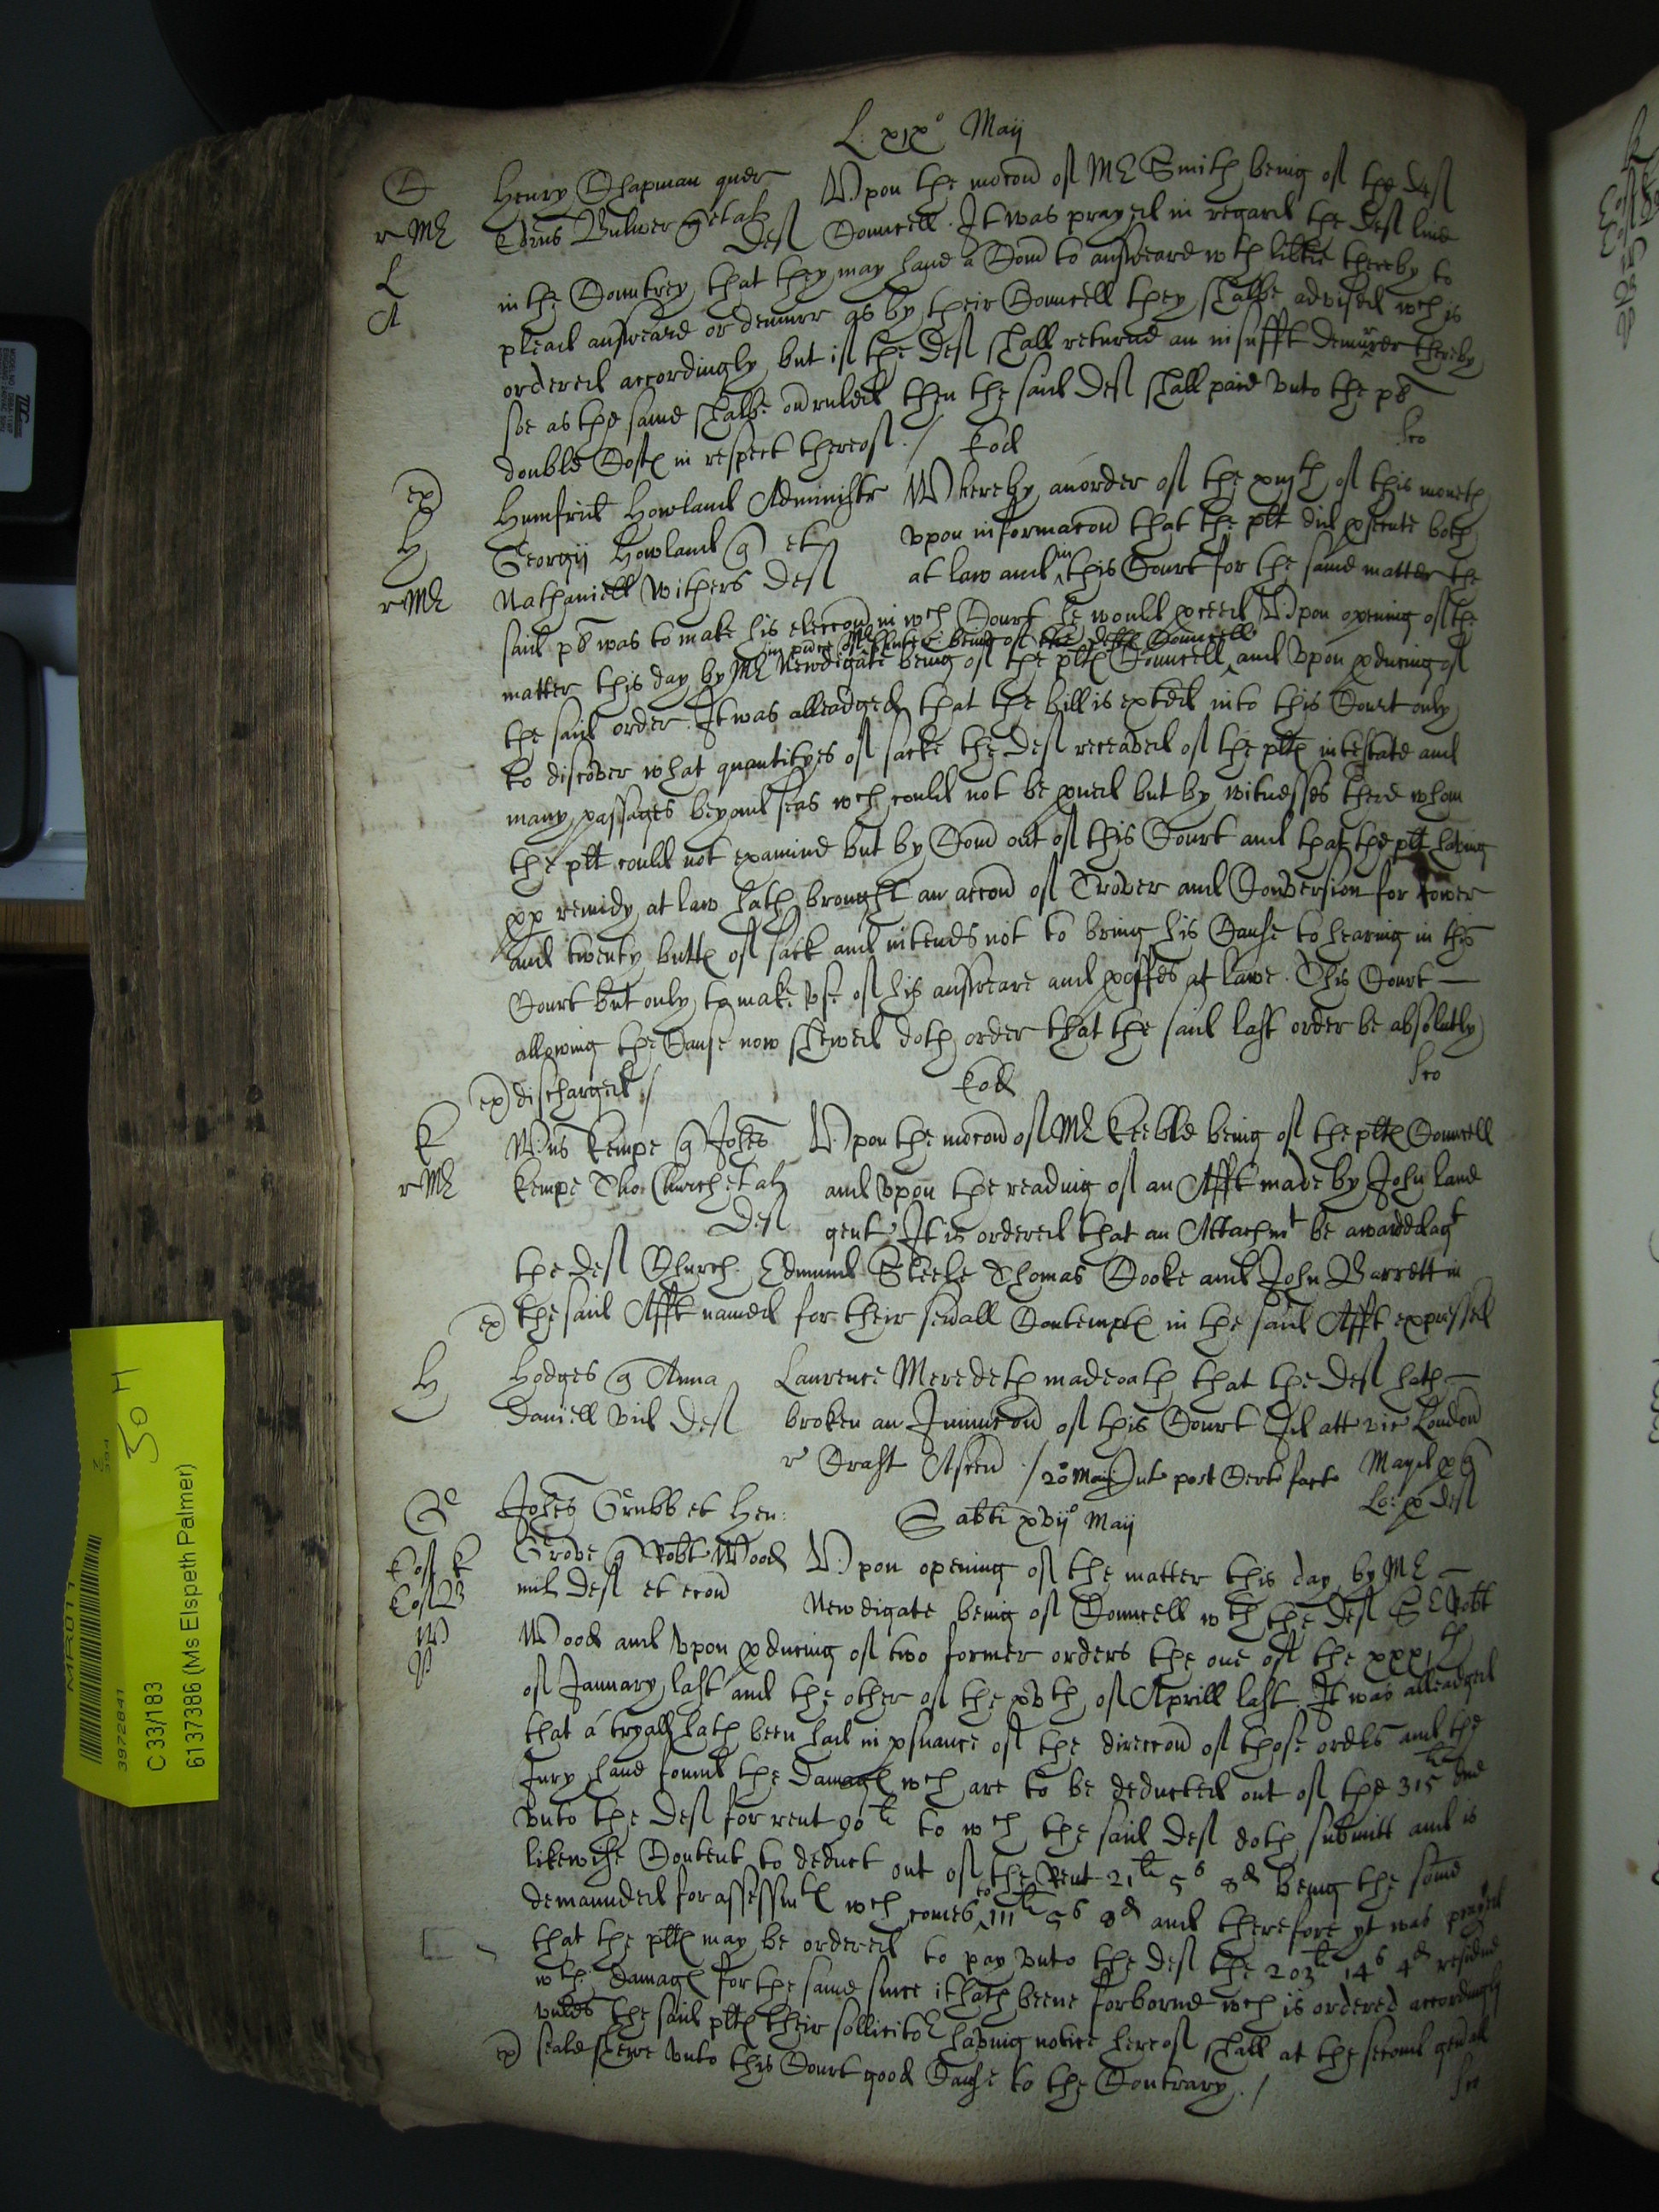 L: xixo Maij
Henry Chapman quer Upon the mocon of Mr Smith being of the def
Edrus Bulwer g et al def Councell. It was prayed in regard the def live
in the Countrey that they may have a Com to answeare wth libtie thereby to
plead answeare or demurr as by their Councell they shalbe advised wch is
ordered accordingly but if the def shall returne an insufft demurrer thereby
soe as the same shalbe ovruled then the said def shall paie unto the pl
double Costs in respect thereof./ Eod
Humfrid Howland Administr Whereby an order of the xiijth of this moneth
Georgij Howland g et upon informacon that the plt did psecute both
Nathaniell Withers def at law and in this Court for the same matter the
said pl was to make his eleccon in wch Court he would pceed Upon opening of the
in psence of Mr being of the defts Councell
matter this day by Mr Newdigate being of the plts Councell and upon pducing of
the said order. It was alleadged that the bill is exhited into this Court only
to discover what quantityes of sacke the def receaved of the plts intestate and
many passages beyond seas wch could not be pved but by witnesses there whom
the plt could not examine but by Com out of this Court and that the plt having
pp remidy at law hath brought an accon of Trover and Conversion for fower
and twenty butts of sack and intends not to bring his Cause to hearing in this
Court but only to make use of his answeare and proffes at lawe. This Court
allowing the Cause now shewed doth order that the said last order be absolutly
ex discharged/ Eod
K Wms Kempe g Johes Upon the mocon of Mr Keeble being of the plts Councell
r Mr Kempe Tho: Church et al and upon the reading of an Afft made by John Lane
def gent It is ordered that an Attachmt be awarded agt
the def Church. Edmund Steele Thomas Cooke and John Barrett in
ex the said Afft named for their sevall Contempts in the said Afft expressed
H Hodges g Anna Laurence Meredeth made oath that the def hath
Daniell vid def broken an Iniunccon of this Court Id att vic London
r Crast Ascen / 20 Maij Int post Certi facto
Johes Grubb et Hen: Sabti xvijo Maij
Grove g Robt Wood Upon opening of the matter this day by Mr
mil def et econ Newdigate being of Councell wth the def Sr Robt
Wood and upon pducing of two former orders the one of the xxxith
of January last and the other of the xvth of Aprill last. It was alleadged
that a tryall hath been had in psuance of the direccon of those ordrs and the
Jury have found the damages wch are to be deducted out of the 315li due
unto the def for rent 90li to wch the said def doth submitt and is
likewise Content to deduct out of the Rent 21li 5s 8d being the some
demaunded for assessmts wch comes to 111li 5s 8d and therefore yt was prayed
that the plts may be ordered to pay unto the def the 203li 14s 4d residue
wth damages for the same since it hath beene forborne wch is ordered accordingly
unles the said plts their sollicitor having notice hereof shall at the second genall
ex seale shewe unto this Court good Cause to the Contrary./
C 33/183
6137386 (Ms Elspeth Palmer)
3972841
50 H